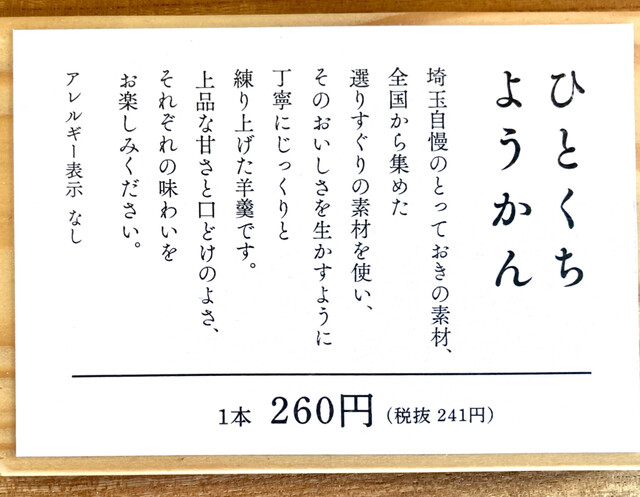 ひとくち
ようかん
埼玉自慢のとっておきの素材、
全国から集めた
選りすぐりの素材を使い、
そのおいしさを生かすように
丁寧にじっくりと
練り上げた羊羹です。
上品な甘さと口どけのよさ、
それぞれの味わいを
お楽しみください。
アレルギー表示 なし
1本 260円（税抜 241円）